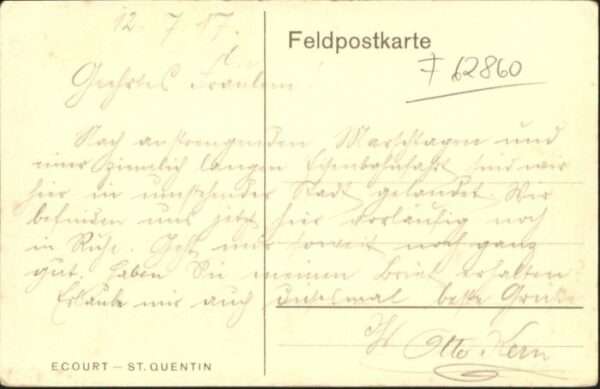 12. 7 17.
Feldpostkarte
F 62860
Geehrtes Fräulein!
Nach anstrengenden Marschtagen und
einer ziemlich langen Eisenbahnfahrt sind wir
hier in umstehender Stadt gelandet. Wir
befinden uns jetzt hier vorläufig noch
in Ruhe. Geht mir soweit noch ganz
gut. Haben Sie meinen Brief erhalten?
Erlaube mir auch diesmal beste Grüße
Otto Kern
ECOURT – ST. QUENTIN